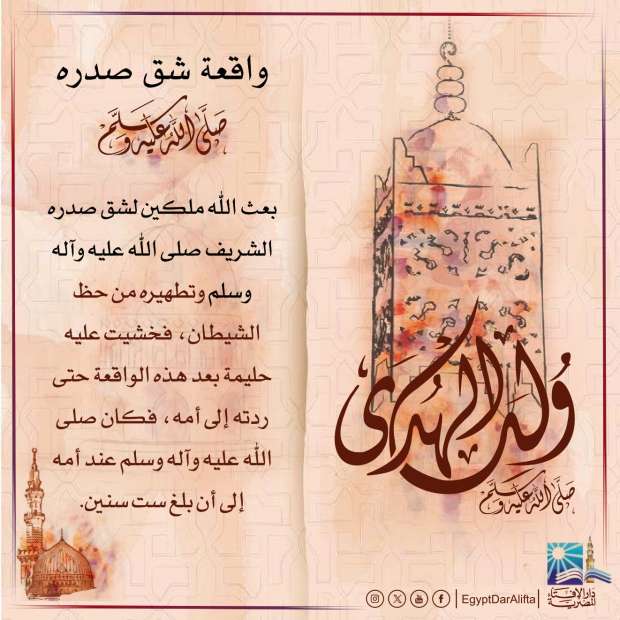 واقعة شق صدره
صَلَّى اللهُ عَلَيْهِ وَسَلَّمَ
بعث الله ملكين لشق صدره
الشريف صلى الله عليه وآله
وسلم وتطهيره من حظ
الشيطان، فخشيت عليه
حليمة بعد هذه الواقعة حتى
ردته إلى أمه، فكان صلى
الله عليه وآله وسلم عند أمه
إلى أن بلغ ست سنين.
وُلِدَ الهُدى
صَلَّى اللهُ عَلَيْهِ وَسَلَّمَ
دار الإفتاء
المصرية
EgyptDarAlifta